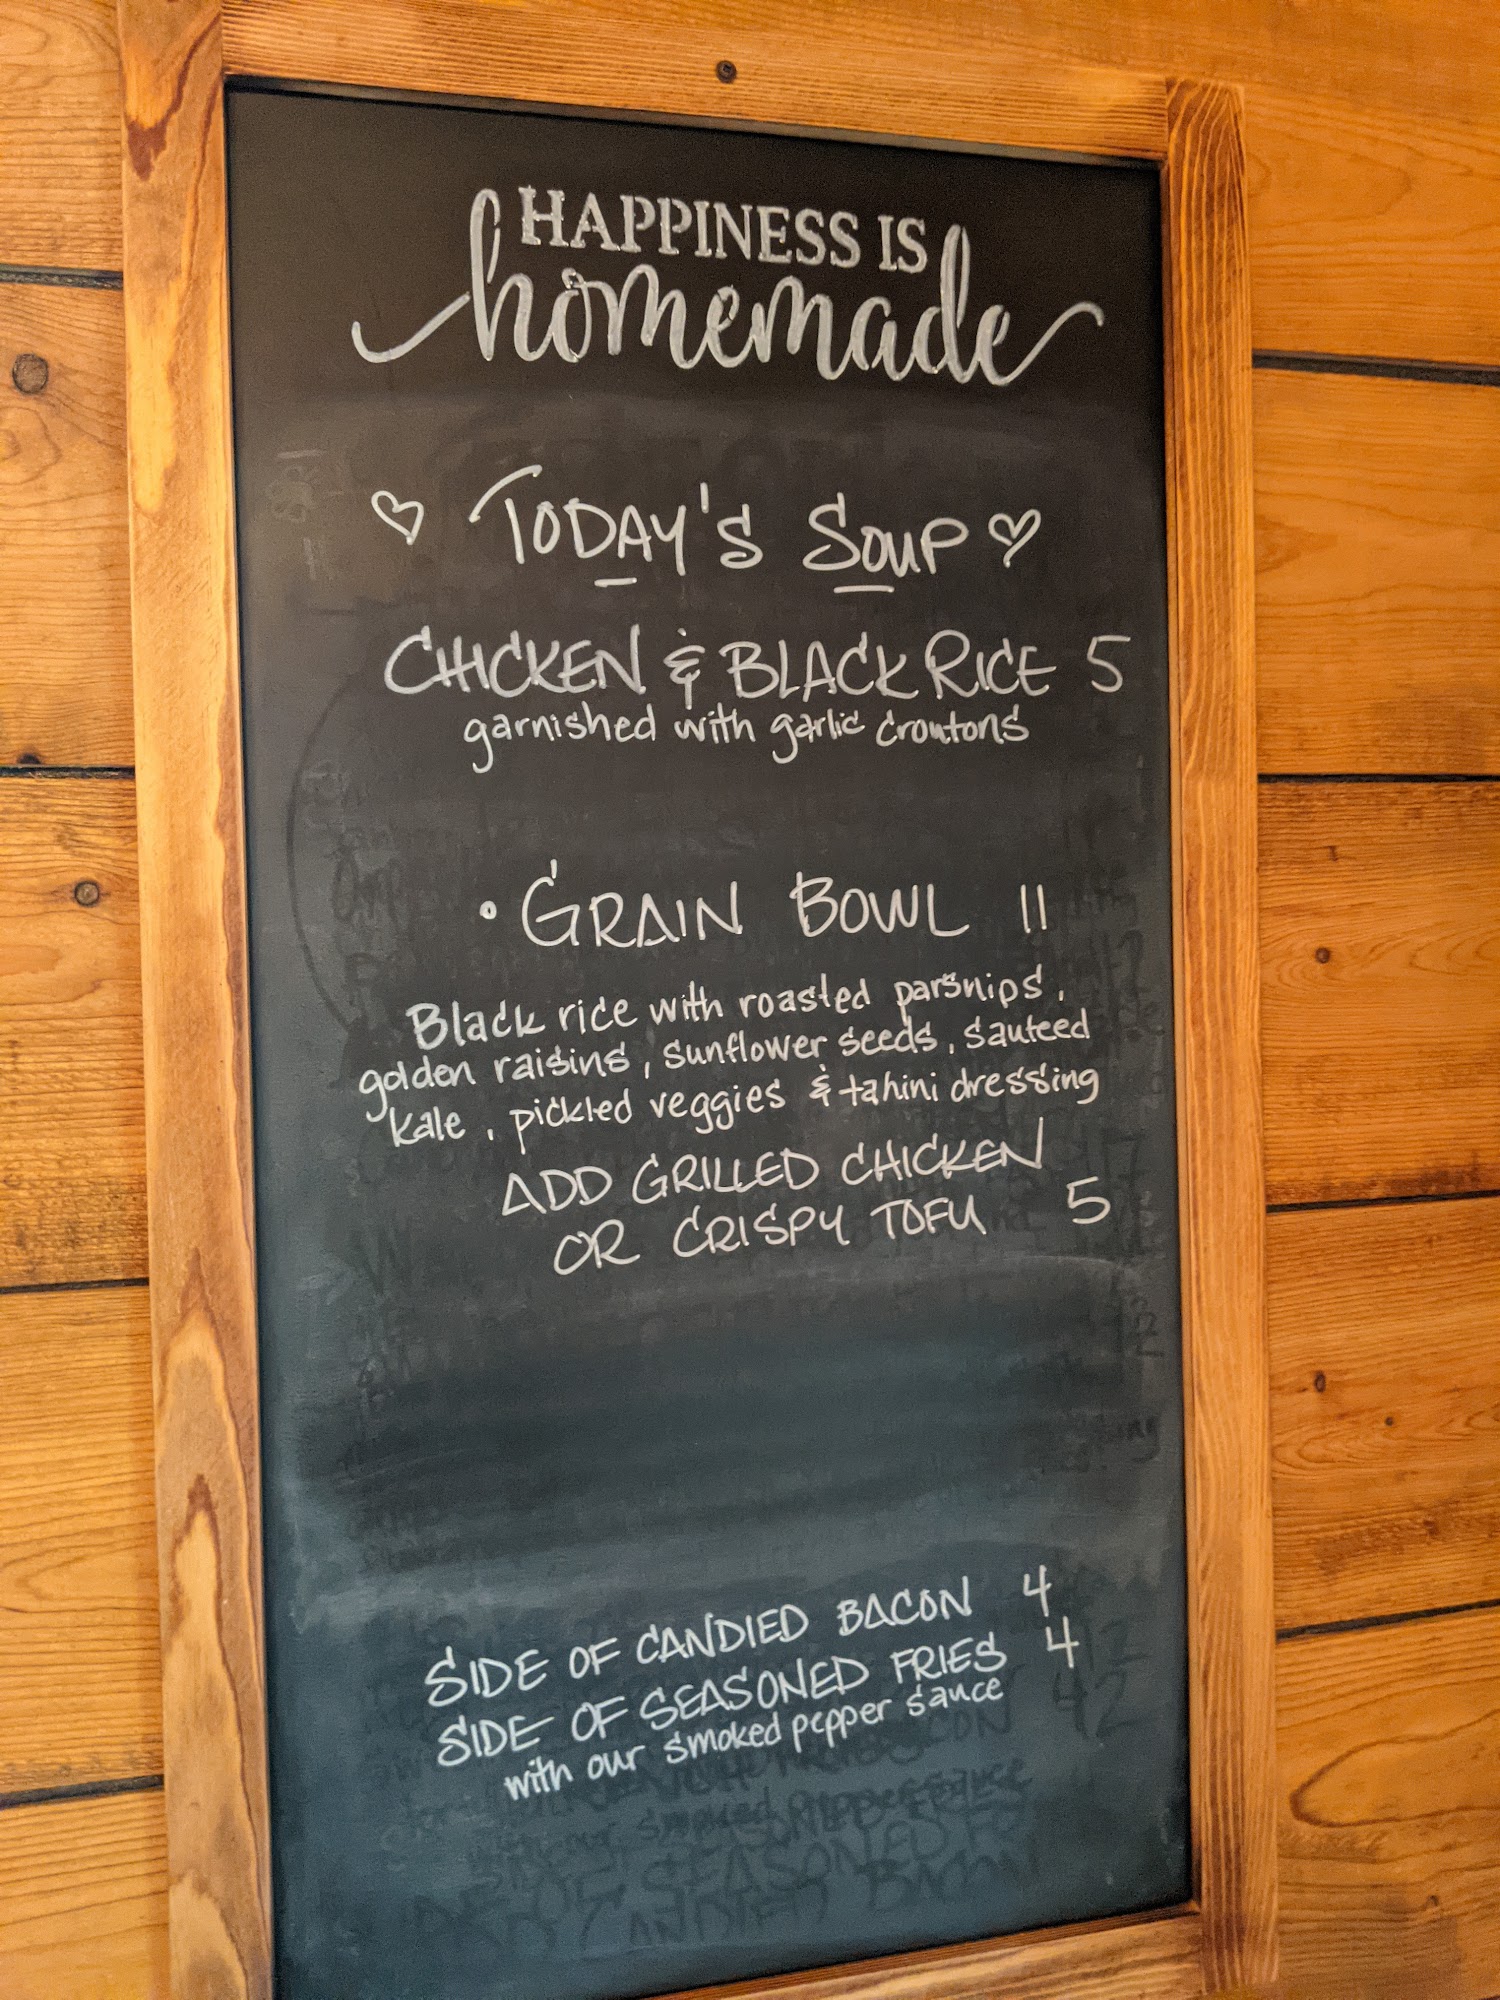 HAPPINESS IS
homemade
TODAY'S SOUP
CHICKEN & BLACK RICE 5
garnished with garlic croutons
• GRAIN BOWL 11
Black rice with roasted parsnips,
golden raisins, sunflower seeds, sauteed
kale, pickled veggies & tahini dressing
ADD GRILLED CHICKEN
OR CRISPY TOFU 5
SIDE OF CANDIED BACON 4
SIDE OF SEASONED FRIES 4
with our smoked pepper sauce